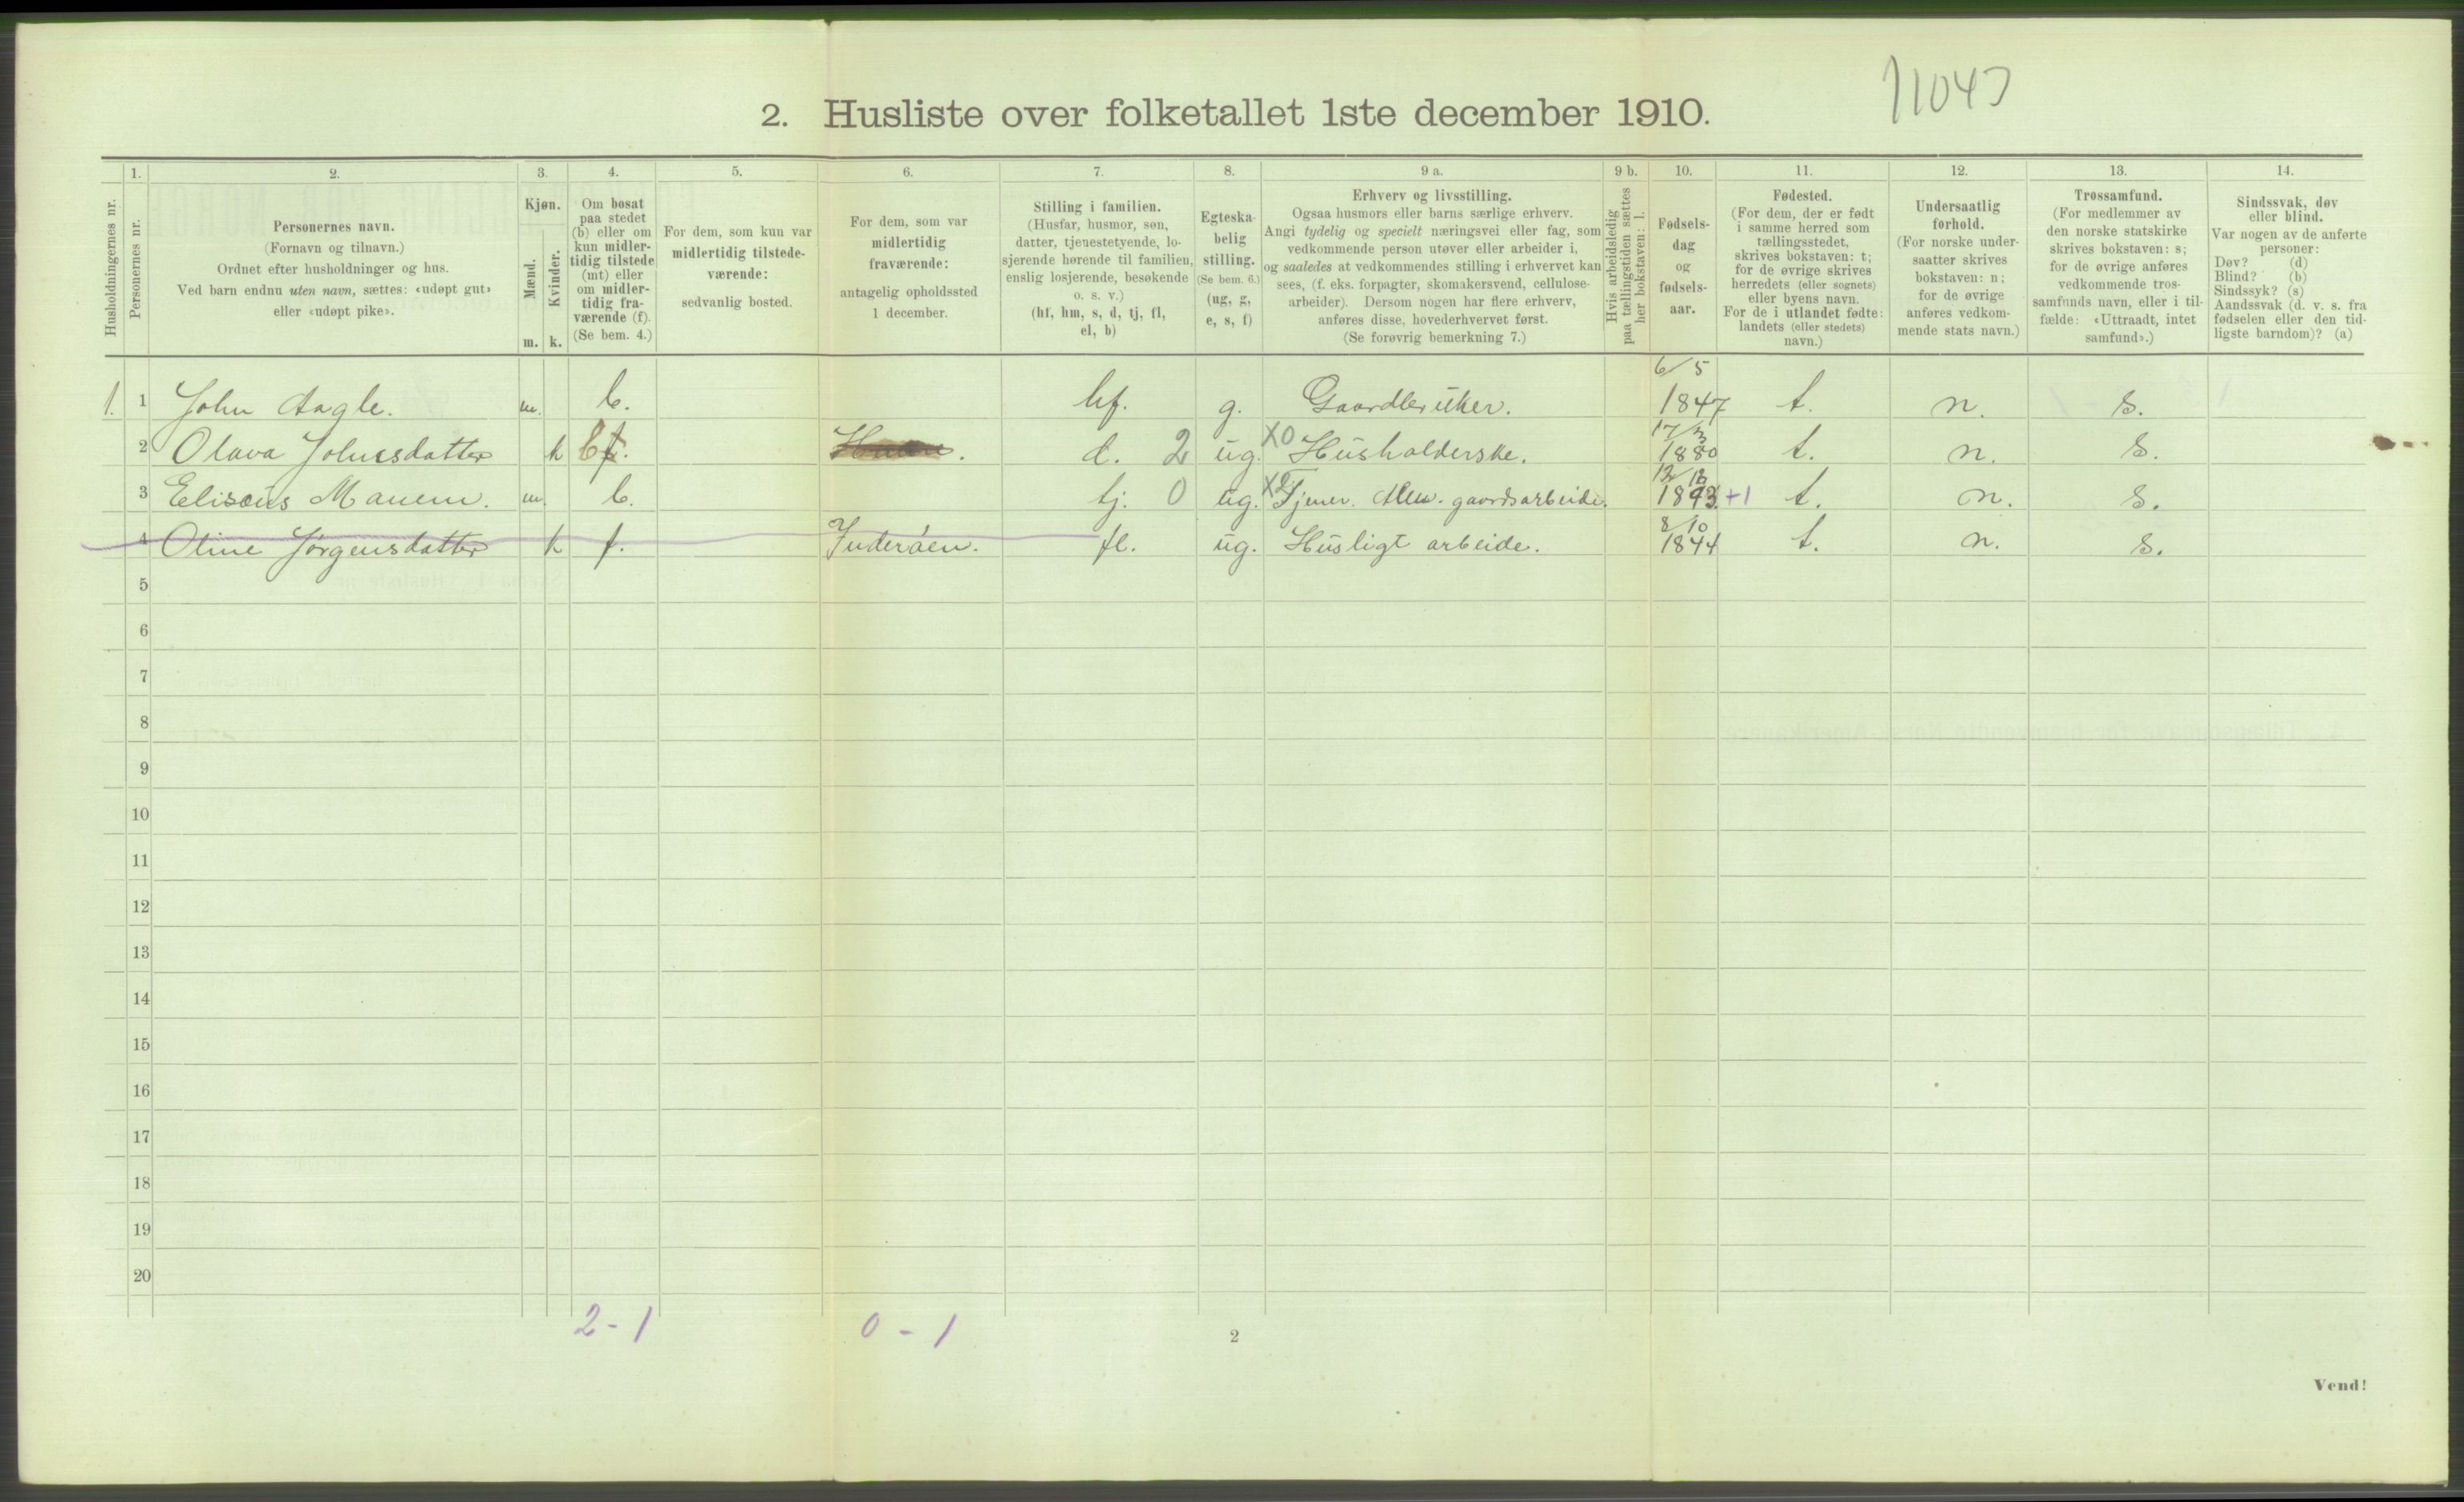 11043
2. Husliste over folketallet 1ste december 1910.
1. 2. 3. 4. 5. 6. 7. 8. 9 a. 9 b. 10. 11. 12. 13. 14.
Husholdningernes nr.
Personernes nr.
Personernes navn.
(Fornavn og tilnavn.)
Ordnet efter husholdninger og hus.
Ved barn endnu uten navn, sættes: «udøpt gut»
eller «udøpt pike».
Kjøn.
Mænd.
Kvinder.
m. k.
Om bosat
paa stedet
(b) eller om
kun midler-
tidig tilstede
(mt) eller
om midler-
tidig fra-
værende (f).
(Se bem. 4.)
For dem, som kun var
midlertidig tilstede-
værende:
sedvanlig bosted.
For dem, som var
midlertidig
fraværende:
antagelig opholdssted
1 december.
Stilling i familien.
(Husfar, husmor, søn,
datter, tjenestetyende, lo-
sjerende hørende til familien,
enslig losjerende, besøkende
o. s. v.)
(hf, hm, s, d, tj, fl,
el, b)
Egteska-
belig
stilling.
(Se bem. 6.)
(ug, g,
e, s, f)
Erhverv og livsstilling.
Ogsaa husmors eller barns særlige erhverv.
Angi tydelig og specielt næringsvei eller fag, som
vedkommende person utøver eller arbeider i,
og saaledes at vedkommendes stilling i erhvervet kan
sees, (f. eks. forpagter, skomakersvend, cellulose-
arbeider). Dersom nogen har flere erhverv,
anføres disse, hovederhvervet først.
(Se forøvrig bemerkning 7.)
Hvis arbeidsledig
paa tællingstiden sættes
her bokstaven: l.
Fødsels-
dag
og
fødsels-
aar.
Fødested.
(For dem, der er født
i samme herred som
tællingsstedet,
skrives bokstaven: t;
for de øvrige skrives
herredets (eller sognets)
eller byens navn.
For de i utlandet fødte:
landets (eller stedets)
navn.)
Undersaatlig
forhold.
(For norske under-
saatter skrives
bokstaven: n;
for de øvrige
anføres vedkom-
mende stats navn.)
Trossamfund.
(For medlemmer av
den norske statskirke
skrives bokstaven: s;
for de øvrige anføres
vedkommende tros-
samfunds navn, eller i til-
fælde: «Uttraadt, intet
samfund».)
Sindssvak, døv
eller blind.
Var nogen av de anførte
personer:
Døv? (d)
Blind? (b)
Sindssyk? (s)
Aandssvak (d. v. s. fra
fødselen eller den tid-
ligste barndom)? (a)
6/5
1. 1 John Aagle. m. b. hf. g. Gaardbruker. 1847 t. n. s.
17/3
2 Olava Johnsdatter k b f. d. 2 ug. X0 Husholderske. 1880 t. n. s.
3 Eliseus Mauem. m. b. tj. 0 ug. Tjener. Alm. gaardsarbeide. 1893 +1 t. n. s.
8/10
4 Oline Jörgensdatter k f. Inderöen. fl. ug. Husligt arbeide. 1844 t. n. s.
5
6
7
8
9
10
11
12
13
14
15
16
17
18
19
20
2 - 1 0 - 1
2
Vend!